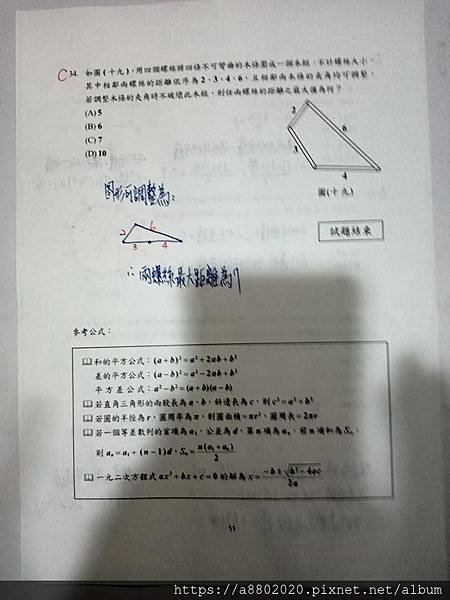 C 34. 如圖(十九)，用四個螺絲將四條不可彎曲的木條圍成一個木框，不計螺絲大小，
其中相鄰兩螺絲的距離依序為2、3、4、6，且相鄰兩木條的夾角均可調整。
若調整木條的夾角時不破壞此木框，則任兩螺絲的距離之最大值為何？
(A) 5
(B) 6
(C) 7
(D) 10
2
6
3
4
圖(十九)
圖形可調整為：
2 6
3 4
∴兩螺絲最大距離為7
試題結束
參考公式：
和的平方公式：(a+b)²=a²+2ab+b²
差的平方公式：(a-b)²=a²-2ab+b²
平方差公式：a²-b²=(a+b)(a-b)
若直角三角形的兩股長為a、b，斜邊長為c，則c²=a²+b²
若圓的半徑為r，圓周率為π，則圓面積=πr²，圓周長=2πr
若一個等差數列的首項為a₁，公差為d，第n項為aₙ，前n項和為Sₙ，
則aₙ=a₁+(n-1)d，Sₙ=n(a₁+aₙ)/2
一元二次方程式ax²+bx+c=0的解為x=(-b±√(b²-4ac))/2a
11
https://a8802020.pixnet.net/album